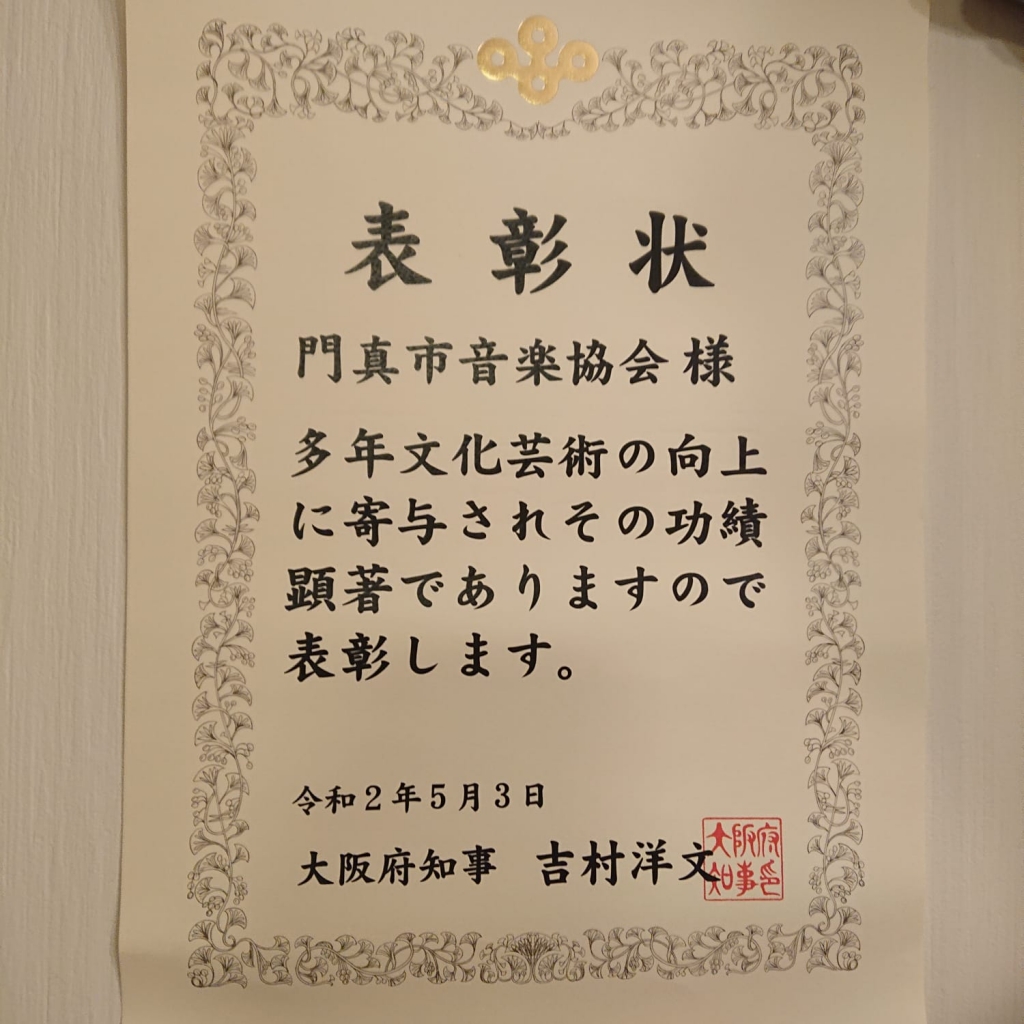 表彰状
門真市音楽協会様
多年文化芸術の向上
に寄与されその功績
顕著でありますので
表彰します。
令和2年5月3日
大阪府知事 吉村洋文
大阪府
知事印